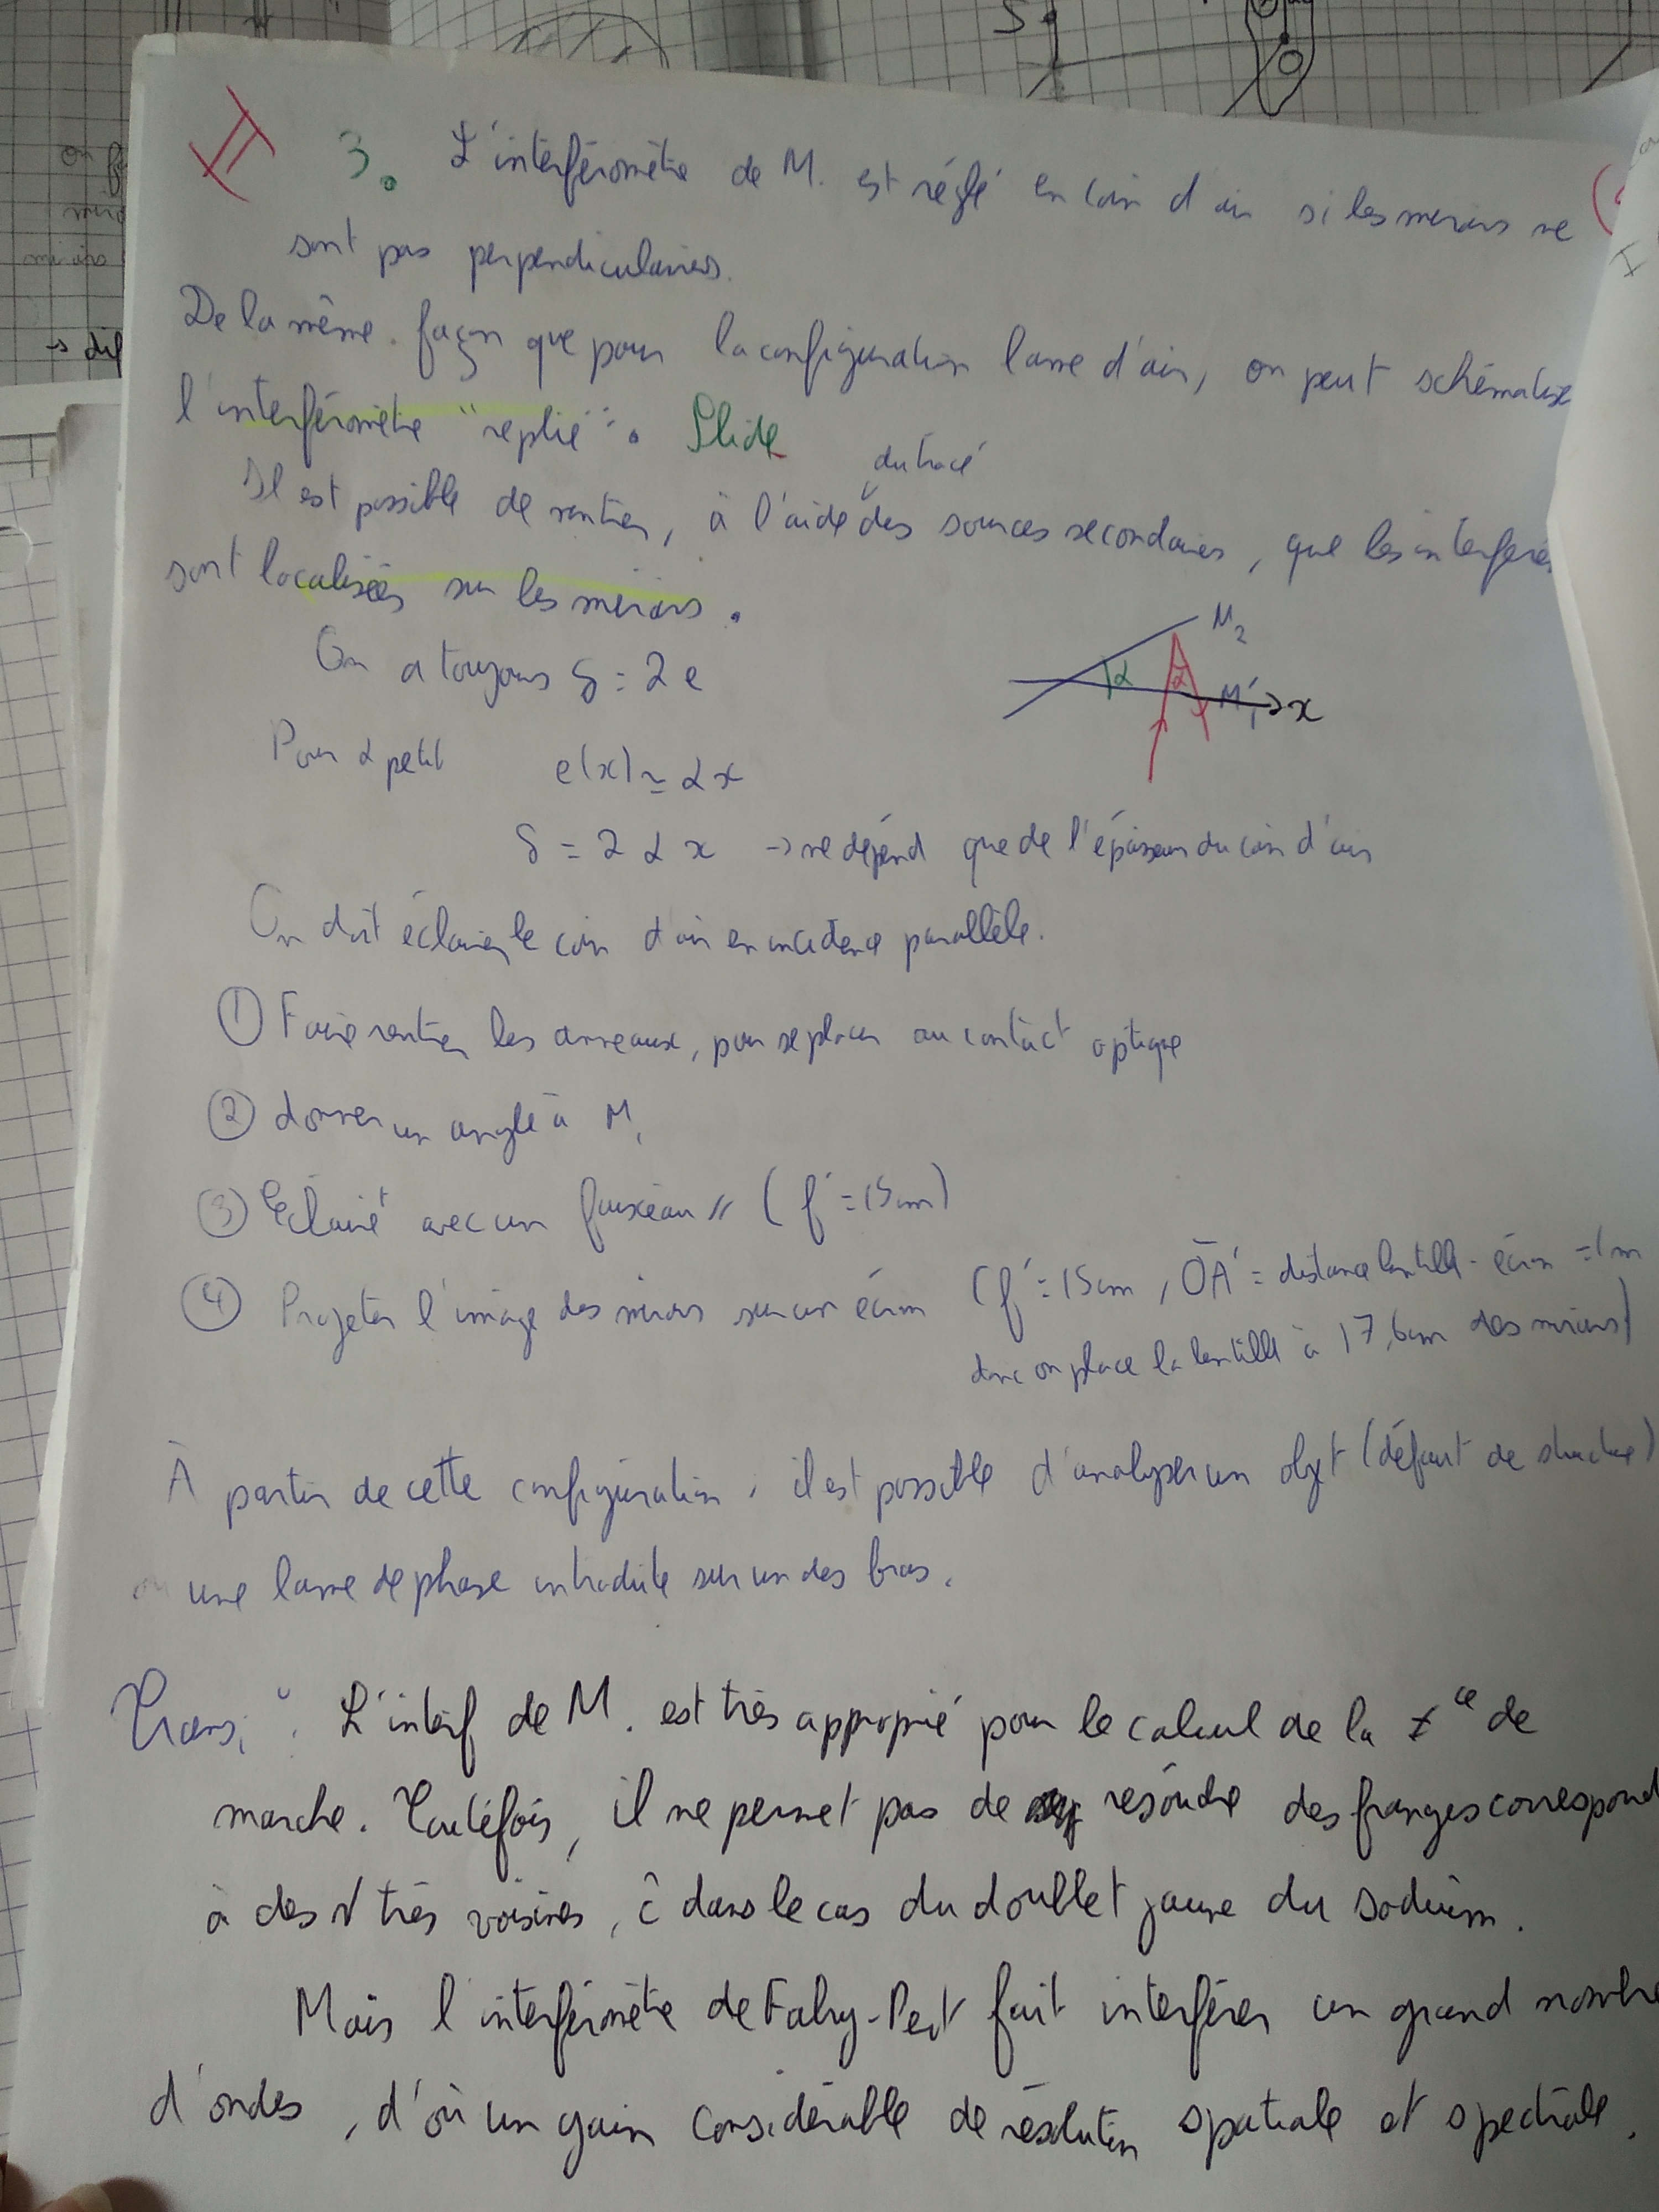 II 3. L'interféromètre de M. est réglé en coin d'air si les miroirs ne
sont pas perpendiculaires.
De la même façon que pour la configuration lame d'air, on peut schématise
l'interféromètre "replié". Slide
du tracé
Il est possible de montrer, à l'aide des sources secondaires, que les interfére
sont localisées sur les miroirs.
On a toujours δ = 2 e
M2
α
α
M'1 → x
Pour α petit e(x) ≃ α x
δ = 2 α x → ne dépend que de l'épaisseur du coin d'air
On doit éclairer le coin d'air en incidence parallèle.
① Faire rentrer les anneaux, pour se placer au contact optique
② donner un angle à M1
③ Eclairé avec un faisceau // (f' = 15 cm)
④ Projeter l'image des miroirs sur un écran (f' = 15 cm, OA' = distance lentille - écran = 1 m
donc on place la lentille à 17,6 cm des miroirs)
À partir de cette configuration, il est possible d'analyser un objet (défaut de structure)
ou une lame de phase introduite sur un des bras.
Trans : L'interf de M. est très approprié pour le calcul de la ≠ce de
marche. Toutefois, il ne permet pas de résoudre des franges correspond
à des très voisines, ĉ dans le cas du doublet jaune du sodium.
Mais l'interféromètre de Fabry-Perot fait interférer un grand nombre
d'ondes, d'où un gain considérable de résolution spatiale et spectrale.